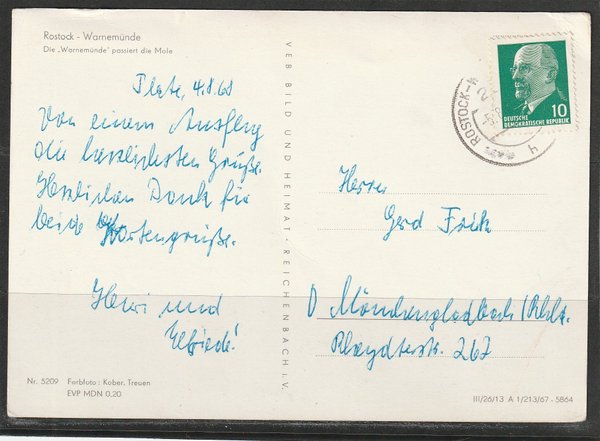 Rostock - Warnemünde
Die „Warnemünde" passiert die Mole
Plate, 4.8.68
Von einem Ausflug
die herzlichsten Grüße.
Herzlichen Dank für
beide Kartengrüße.
und
Elfriede!
Nr. 5209 Farbfoto: Kober, Treuen
EVP MDN 0,20
VEB BILD UND HEIMAT · REICHENBACH i. V.
10
DEUTSCHE
DEMOKRATISCHE REPUBLIK
ROSTOCK
Herrn
Gerd Frik
Mönchengladbach/Rhld.
Rheydterstr. 267
III/26/13 A 1/213/67 - 5864